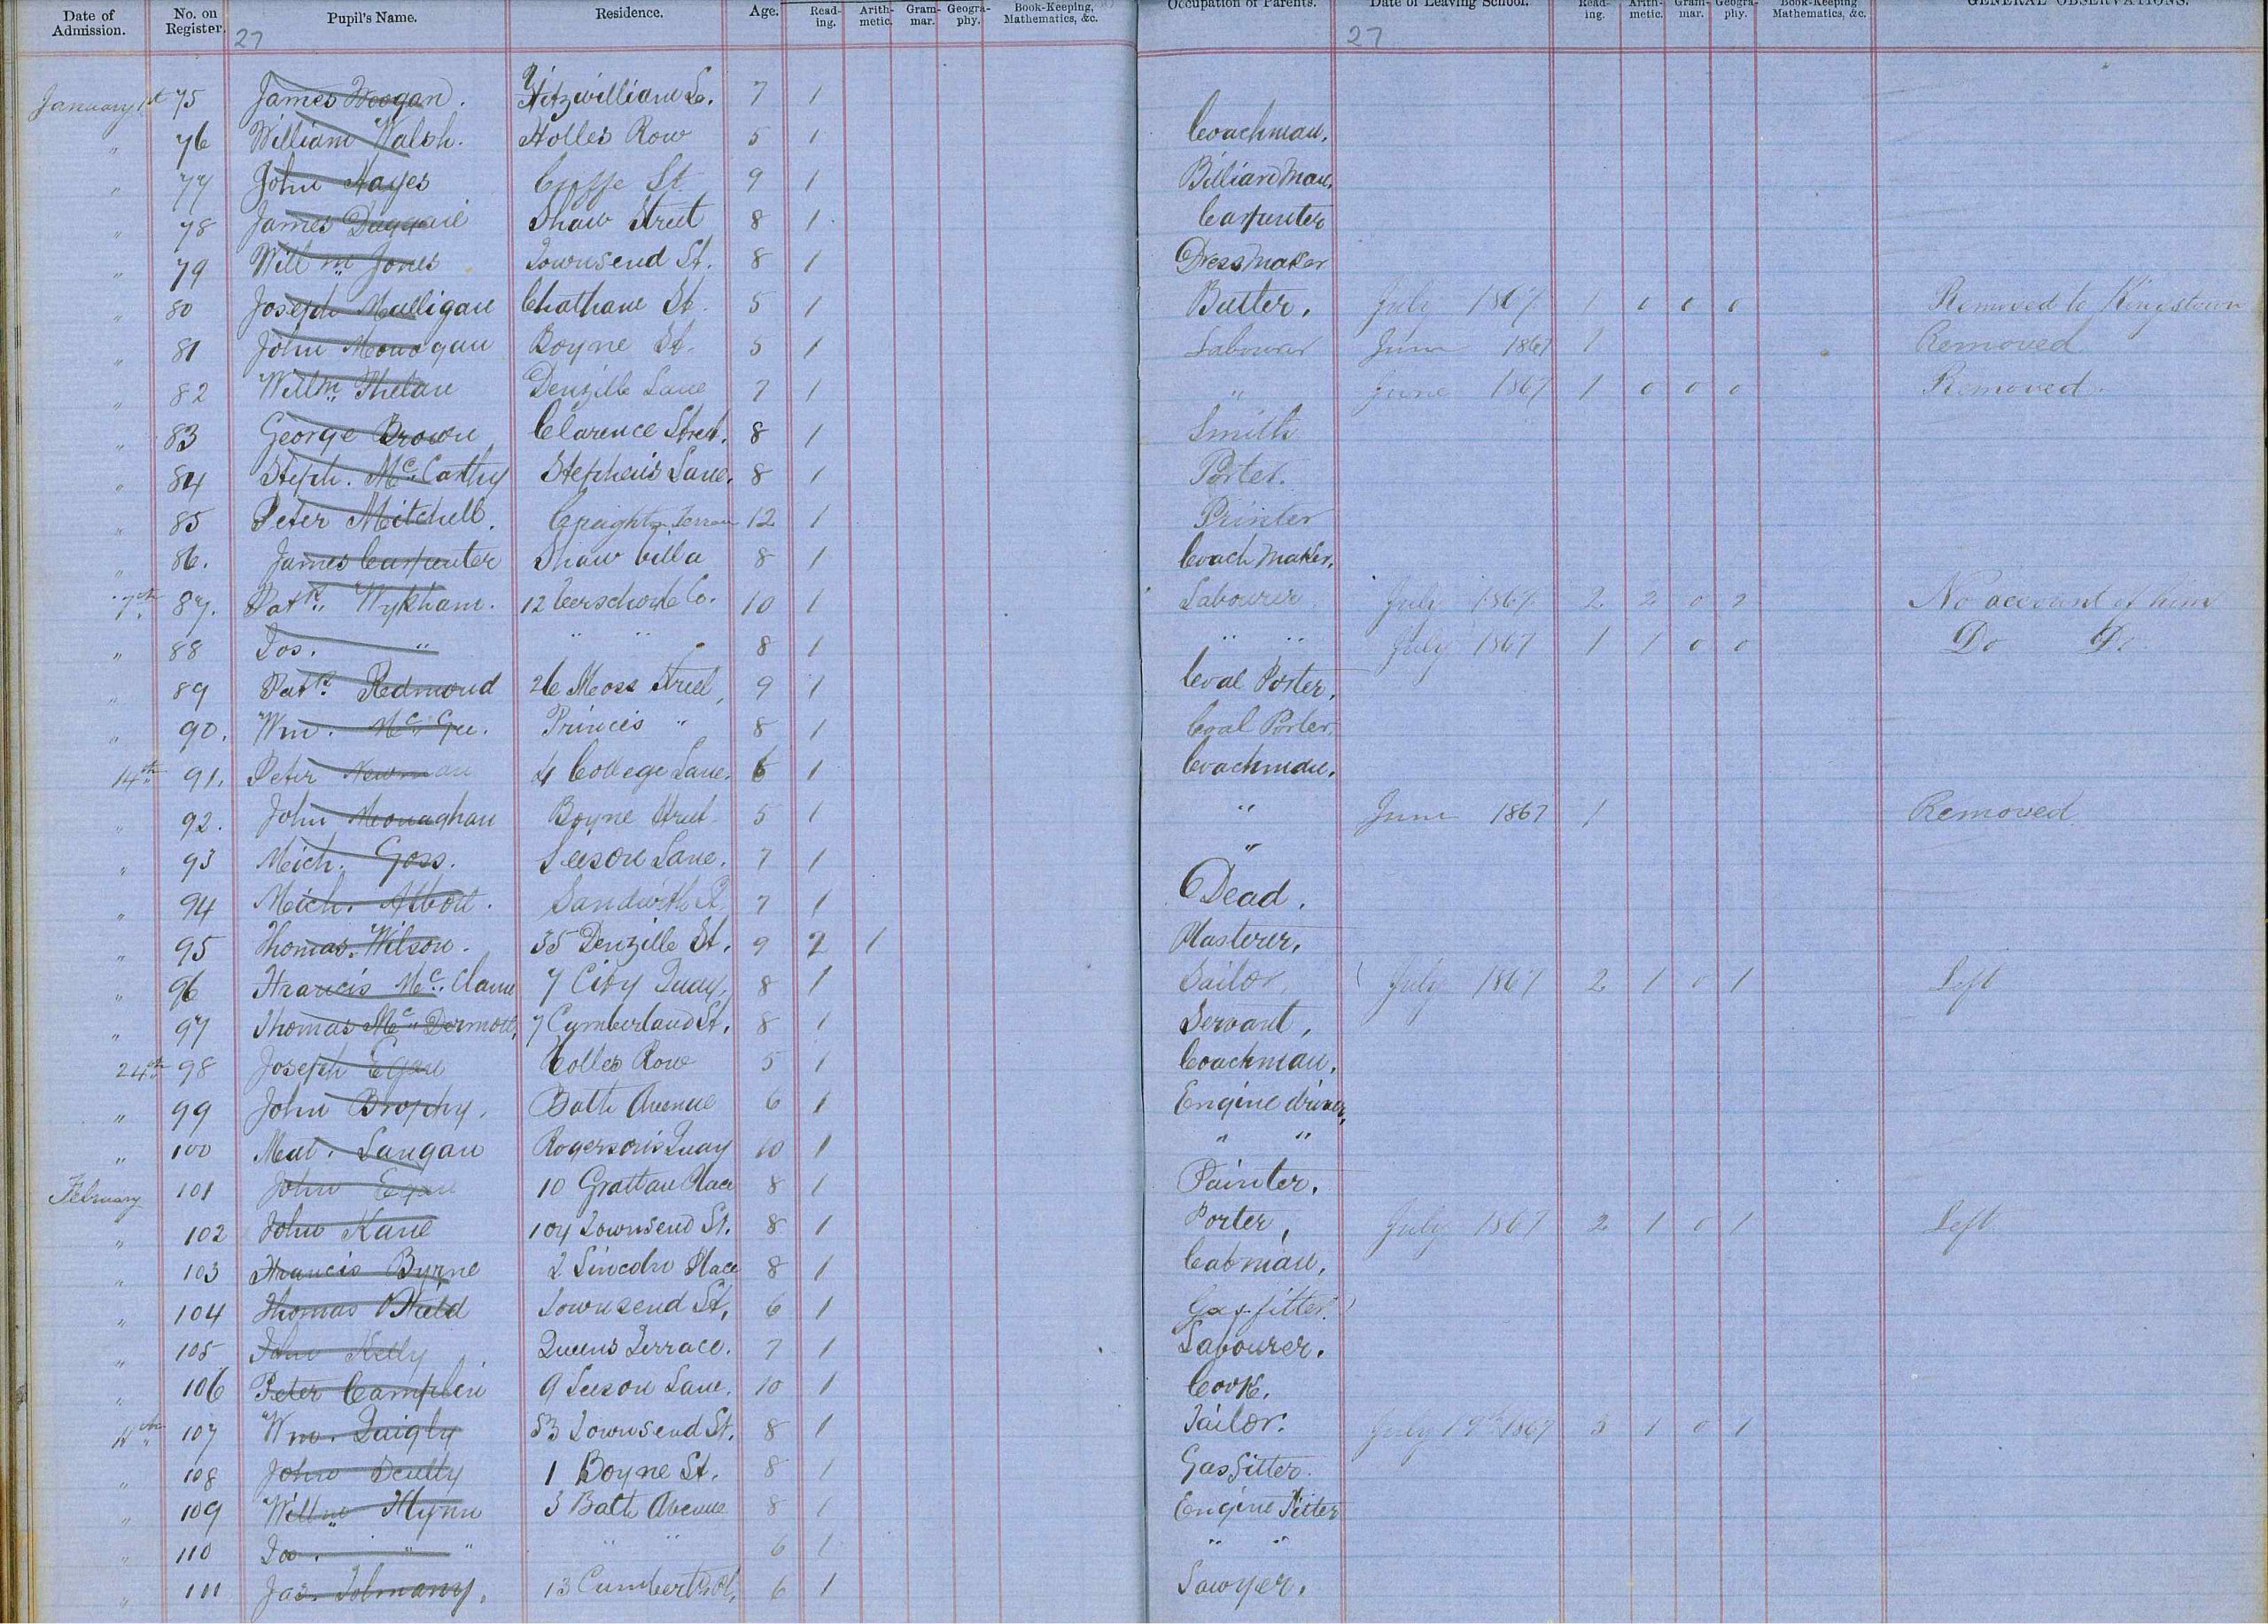 Date of Admission. No. on Register. Pupil's Name. Residence. Age. Read-ing. Arith-metic. Gram-mar. Geogra-phy. Book-Keeping, Mathematics, &c. Occupation of Parents. Date of Leaving School. Read-ing. Arith-metic. Gram-mar. Geogra-phy. Book-Keeping Mathematics, &c. GENERAL OBSERVATIONS.
27 27
January 1st 75 James Fitzwilliam 7 1
" 76 William Walsh. Holles Row 5 1 Coachman.
" 77 John Hayes St. 9 1 Billiard Man.
" 78 James Shaw Street 8 1 Carpenter
" 79 Willm Jones Townsend St. 8 1 Dress Maker
" 80 Joseph Mulligan Chatham St. 5 1 Butler. July 1867 1 0 0 0 Removed to Kingstown
" 81 John Monogan Boyne St. 5 1 Labourer June 1867 1 Removed
" 82 Willm Phelan Denzille Lane 7 1 " June 1867 1 0 0 0 Removed.
" 83 George Brown Clarence Street. 8 1 Smith
" 84 Steph. McCarthy Stephen's Lane. 8 1 Porter.
" 85 Peter Mitchell. Creighton Terrace 12 1 Printer
" 86. James Carpenter Shaw Villa 8 1 Coach Maker.
7th 87. Patk. Wykham. 12 Co. 10 1 Labourer July 1867 2 2 0 2 No account of him
" 88 Jos. " " " 8 1 " " July 1867 1 1 0 0 Do Do
" 89 Patk. Redmond 26 Moss Street 9 1 Coal Porter.
" 90. Wm. McGee. Princes " 8 1 Coal Porter.
14th 91. Peter Newman 4 College Lane. 6 1 Coachman.
" 92. John Monaghan Boyne Street 5 1 " June 1867 1 Removed
" 93 Mich. Goss. Leeson Lane. 7 1 "
" 94 Mich. Abbott. Sandwith 7 1 Dead.
" 95 Thomas Wilson. 35 Denzille St. 9 2 1 Plasterer.
" 96 Francis Mc. 7 City Quay. 8 1 Sailor. July 1867 2 1 0 1 Left
" 97 Thomas McDermott, 7 Cumberland St. 8 1 Servant,
24th 98 Joseph Egan Holles Row 5 1 Coachman.
" 99 John Brophy. Bath Avenue 6 1 Engine driver,
" 100 Langan Rogerson's Quay 10 1 " "
February 101 John Egan 10 Grattan Place 8 1 Painter.
" 102 John Kane 104 Townsend St. 8 1 Porter, July 1867 2 1 0 1 Left
" 103 Francis Byrne 2 Lincoln Place 8 1 Cabman.
" 104 Thomas Townsend St. 6 1 Gas fitter.
" 105 John Kelly Queens Terrace. 7 1 Labourer.
" 106 Peter Camplin 9 Leeson Lane. 10 1 Cook.
11th 107 Wm. Quigly 53 Townsend St. 8 1 Tailor. July 19th 1867 3 1 0 1
" 108 John Scully 1 Boyne St. 8 1 Gas fitter.
" 109 Willm Flynn 3 Bath Avenue 8 1 Engine Fitter
" 110 " " " " 6 1 " "
" 111 Jas. Tolmany. 13 Cumberland 6 1 Sawyer.